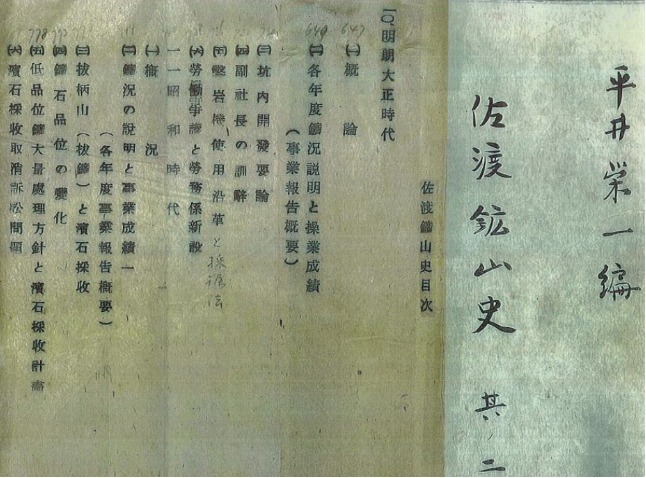 平井栄一編
佐渡鉱山史 其二
佐渡鑛山史目次
一〇、明朗大正時代
647
㈠概論
649
㈡各年度鑛況説明と操業成績
（事業報告概要）
㈢坑内開發要論
㈣副社長の訓辭
㈤鑿岩機使用沿革と採掘法
㈥勞働爭議と勞務係新設
一一昭和時代
㈠概況
㈡鑛況の説明と事業成績一
（各年度事業報告概要）
㈢抜柄山（抜鑛）と濱石採收
㈣鑛石品位の變化
㈤低品位鑛大量處理方針と濱石採收計畫
㈥濱石採收取消訴訟問題